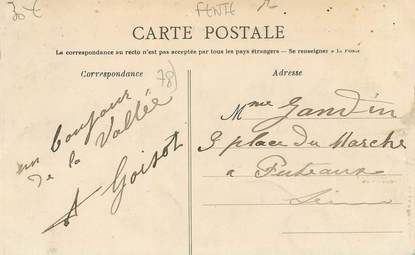 30 €
CARTE POSTALE
La correspondance au recto n'est pas acceptée par tous les pays étrangers — Se renseigner à la Poste
Correspondance
Adresse
78)
un bonjour
de la Vallée
A Goisot
Mme Gandin
3 place du Marche
a Puteaux
Seine